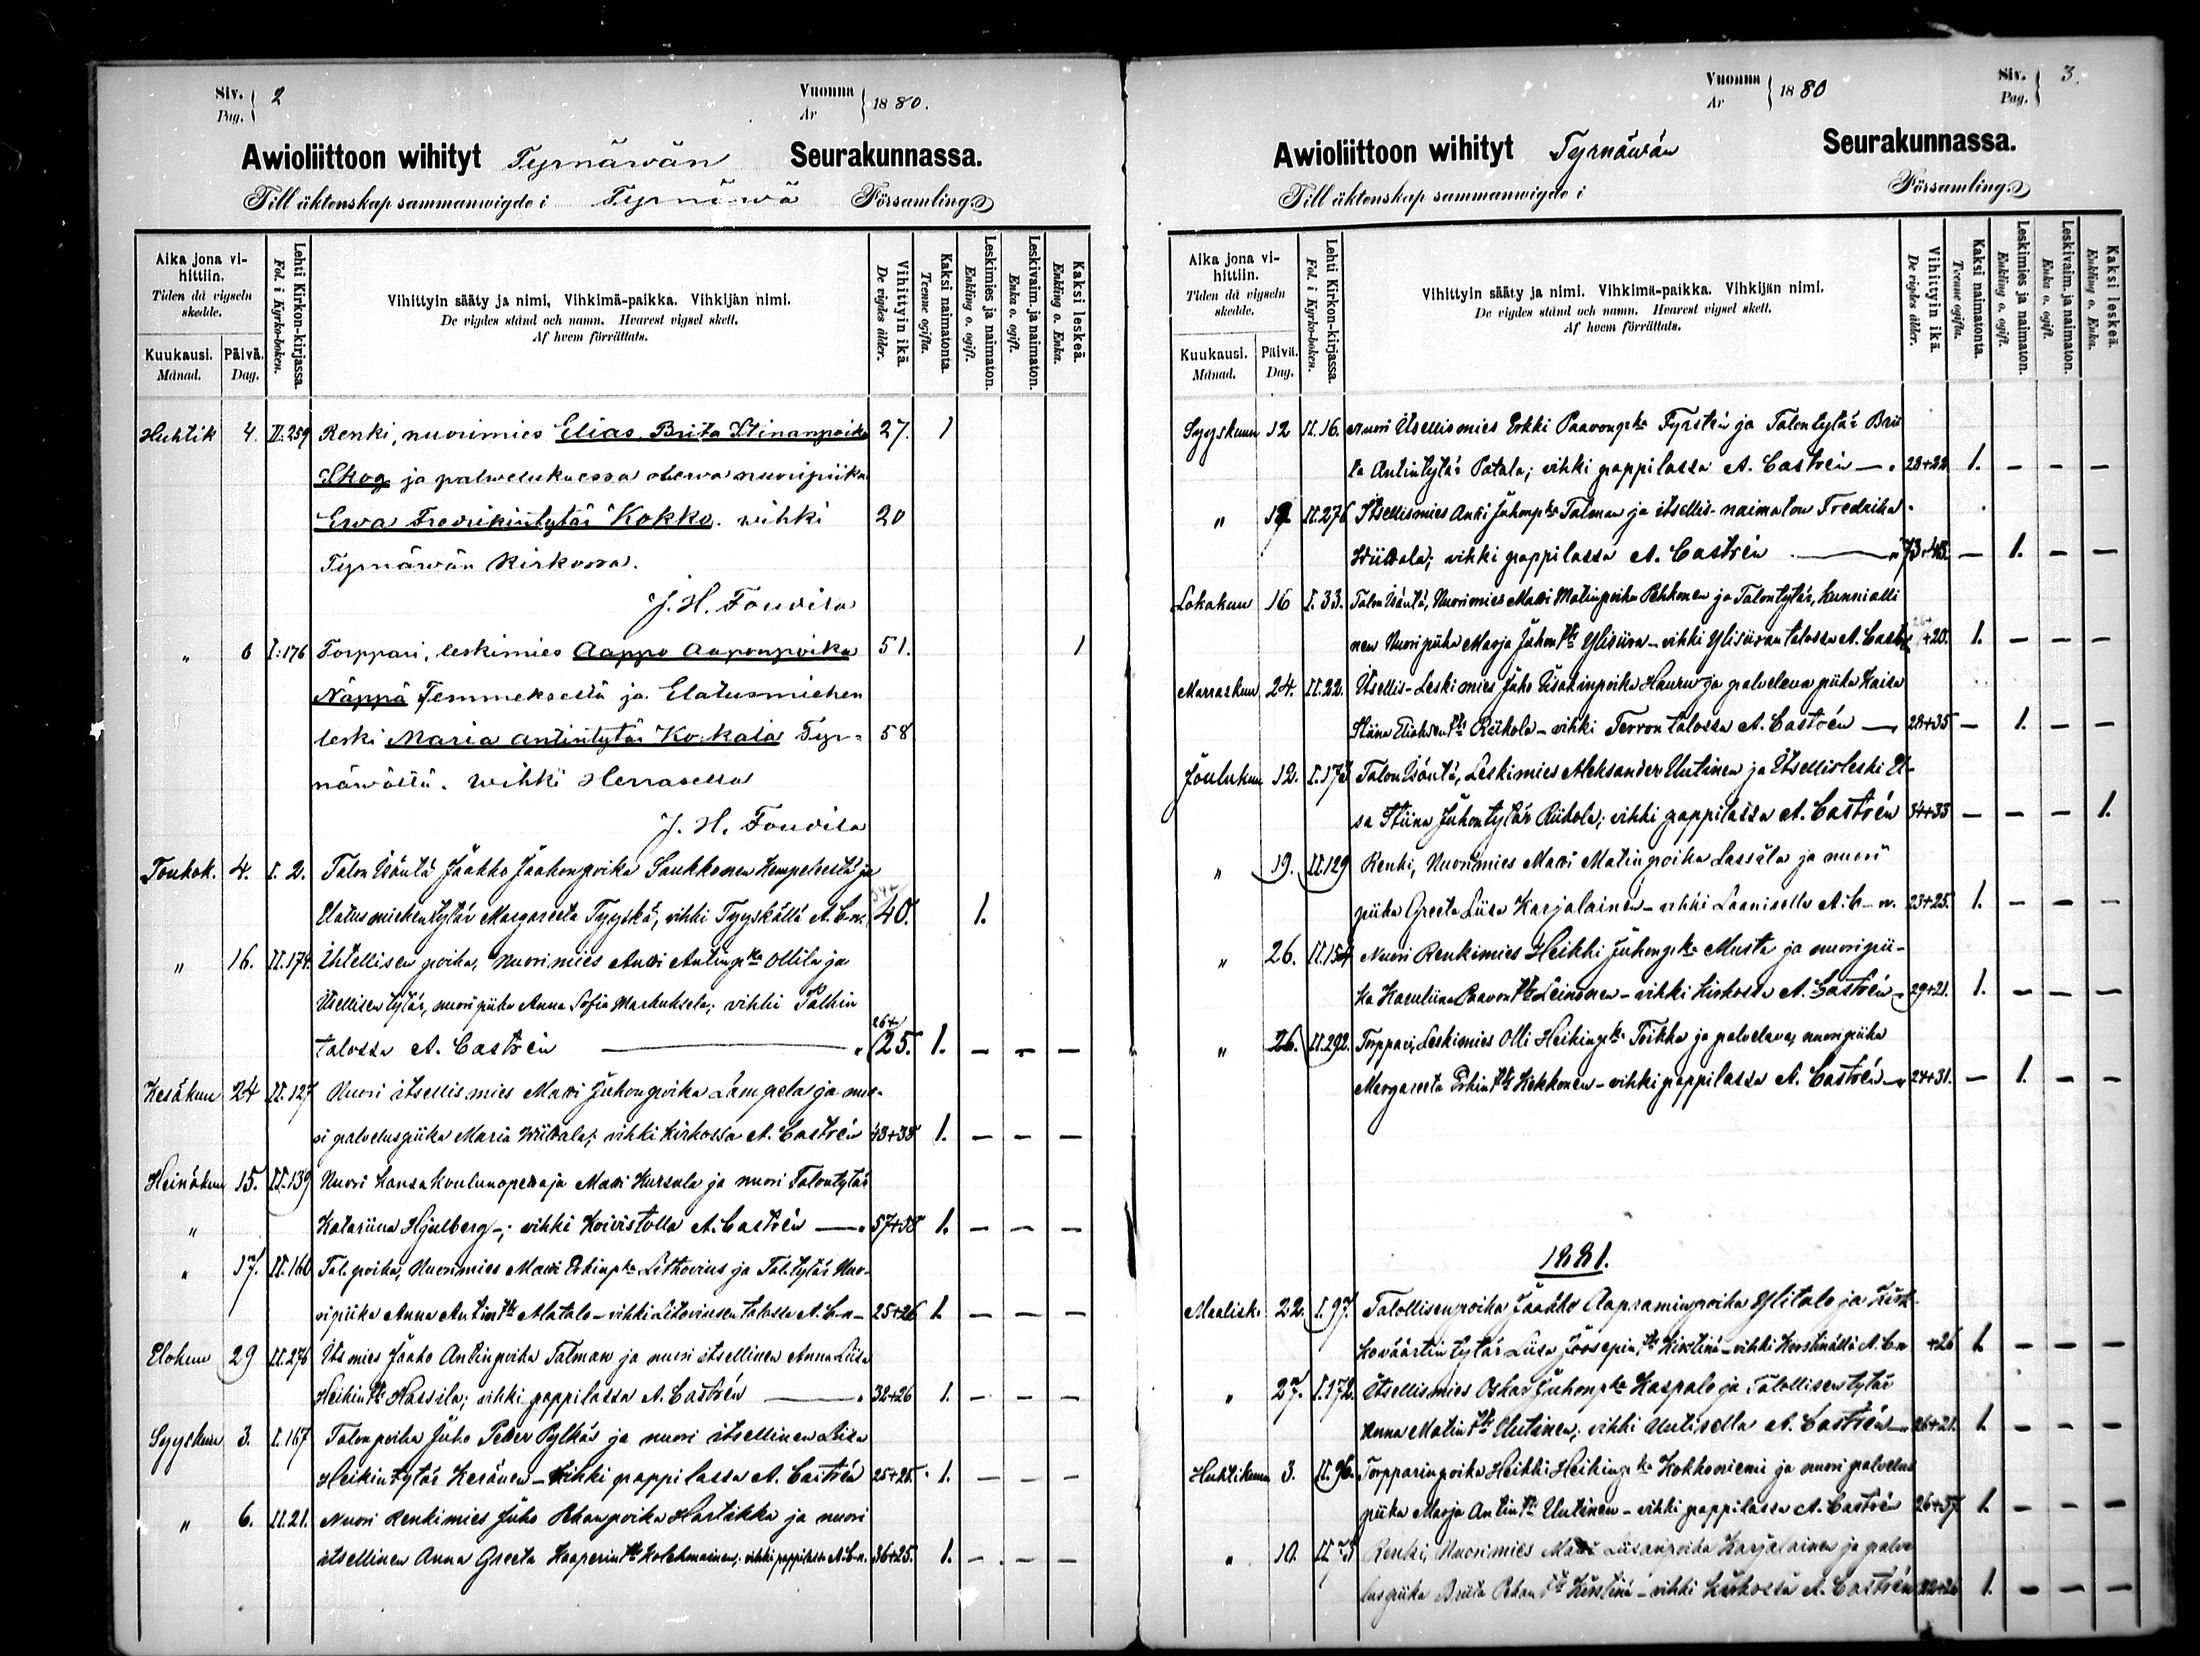 Siv. Pag. 2
Vuonna År 1880.
Awioliittoon wihityt Tyrnäwän Seurakunnassa.
Till äktenskap sammanwigde i Tyrnäwä Församling.
Aika jona vihittiin. Tiden då vigseln skedde.
Kuukausi. Månad.
Päivä. Dag.
Lehti Kirkon-kirjassa. Fol. i Kyrko-boken.
Vihittyin sääty ja nimi, Vihkimä-paikka. Vihkijän nimi.
De vigdes stånd och namn. Hvarest vigsel skett.
Af hvem förrättats.
Vihittyin ikä. De vigdes ålder.
Kaksi naimatonta. Tvenne ogifta.
Leskimies ja naimaton. Enkling o. ogift.
Leskivaim. ja naimaton. Enka o. ogift.
Kaksi leskeä. Enkling o. Enka.
Huhtik 4. II:259 Renki, nuorimies Elias Brita Stinanpoika 27. 1
Skog ja palweluksessa olewa nuoripiika
Ewa Fredrikintytär Kokko. wihki 20
Tyrnäwän Kirkossa.
J. H. Fonvila
" 6 I:176 Torppari, leskimies Aappo Aaponpoika 51. 1
Näppä Temmekseltä ja Elatusmiehen
leski Maria Antintytär Korkala Tyr- 58
näwältä. wihki Herrasella
J. H. Fonvila
Toukok. 4. I. 2. Talon Isäntä Jaakko Jaakonpoika Saukkonen Kempeleestä ja
Elatusmiehen tytär Margareeta Tyyskä, vihki Tyyskällä A. C-n. 40. 1.
" 16. II.174. Ihtellisen poika, Nuorimies Antti Antinpka Ollila ja
Itsellisen tytär, nuoripiika Anna Sofia Markuksela; vihki Palkin
talossa A. Castrén " 26+25. 1. – – –
Kesäkuu 24 II.127 Nuori itsellismies Matti Juhonpoika Lampela ja nuo-
ri palveluspiika Maria Wiittala; vihki Kirkossa A. Castrén 43+38 1. – – –
Heinäkuu 15. II.139 Nuori kansakoulunopettaja Matti Kursula ja nuori Talontytär
" Katariina Hjelberg –; vihki Koivistolla A. Castrén – " 57+38 1. – – –
" 17. II.160 Tal. poika, Nuorimies Matti Erkinpka Lithovius ja Tal. tytär Nuo-
ripiika Anna Antintr Alatalo – vihki Litoviusen talossa A. C-n – 25+26 1. – – –
Elokuu 29 II.276 Its mies Jaako Antinpoika Talman ja nuori itsellinen Anna Liisa
Heikintr Hassila; vihki pappilassa A. Castrén " 32+26 1. – – –
Syyskuu 3. I.167 Talonpoika Juho Petter Pylkäs ja nuori itsellinen Liisa
Heikintytär Keränen – Vihki pappilassa A. Castrén 25+25. 1. – – –
" 6. II.21. Nuori Renkimies Juho Pekanpoika Hartikka ja nuori
itsellinen Anna Greeta Kaaperintr Kolehmainen; vihki pappilassa A. C-n. 36+25. 1. – – –
Siv. Pag. 3.
Vuonna År 1880
Awioliittoon wihityt Tyrnäwän Seurakunnassa.
Till äktenskap sammanwigde i Församling.
Aika jona vihittiin. Tiden då vigseln skedde.
Kuukausi. Månad.
Päivä. Dag.
Lehti Kirkon-kirjassa. Fol. i Kyrko-boken.
Vihittyin sääty ja nimi. Vihkimä-paikka. Vihkijän nimi.
De vigdes stånd och namn. Hvarest vigsel skett.
Af hvem förrättats.
Vihittyin ikä. De vigdes ålder.
Kaksi naimatonta. Tvenne ogifta.
Leskimies ja naimaton. Enkling o. ogift.
Leskivaim. ja naimaton. Enka o. ogift.
Kaksi leskeä. Enkling o. Enka.
Syyskuu 12 II.16. Nuori Itsellismies Erkki Paavonpka Fyrstén ja Talontytär Brii
ta Antintytär Patala; vihki pappilassa A. Castrén – " 28+22 1. – – –
" 12 II.276 Itsellismies Antti Juhonpka Talman ja itsellis-naimaton Fredrika
Wiittala; vihki pappilassa A. Castrén " 73+48. – 1. – –
Lokakuu 16 I.33. Talon Isäntä, Nuorimies Matti Matinpoika Pehkonen ja Talontytär, kunnialli
nen Nuoripiika Marja Juhontr Ylisiira – vihki Ylisiiran talossa A. Castrén 26+20. 1. – – –
Marraskuu 24. II.22. Itsellis-Leskimies Juho Iisakinpoika Hauru ja palveleva piika Kaisa
Stiina Eliaksentr Riikola – vihki Tervon talossa A. Castrén – 28+35 – 1. – –
Joulukuu 12. I.173 Talon Isäntä, Leskimies Aleksander Uutinen ja Itsellisleski El-
sa Stiina Juhontytär Riidola; vihki pappilassa A. Castrén 34+33 – – – 1.
" 19. II.129 Renki, Nuorimies Matti Matinpoika Lassila ja nuori
piika Greeta Liisa Karjalainen – vihki Laanisella A. C-n. 23+25. 1. – – –
" 26. II.154 Nuori Renkimies Heikki Juhonpka Musta ja nuoripii-
ka Karuliina Paavontr Leinonen – vihki Kirkossa A. Castrén " 29+21. 1. – – –
" 26. II.292. Torppari, Leskimies Olli Heikinpka Toikka ja palveleva, nuoripiika
Margareeta Erkintr Kekkonen – vihki pappilassa A. Castrén – " 24+31. – 1. – –
1881.
Maalisk. 22. I.97. Talollisenpoika Jaakko Aapraminpoika Ylitalo ja Kirk-
koväärtin tytär Liisa Joosepintr Kirstinä – vihki Kirstinällä A. C-n +26 1 – – –
" 27. I.172. Itsellismies Oskar Juhonpka Kaspala ja Talollisentytär
Anna Matintr Uutinen; vihki Uutisella A. Castrén – " 26+21. 1. – – –
Huhtikuu 3. II.96. Torpparinpoika Heikki Heikinpka Kokkoniemi ja nuori palvelus
piika Marja Antintr Uutinen – vihki pappilassa A. Castrén 26+37 1. – – –
" 10. II Renki, Nuorimies Matti Liisanpoika Karjalainen ja palve
luspiika Briita Pekantr Kirstinä – vihki Kirkossa A. Castrén 1. – – –